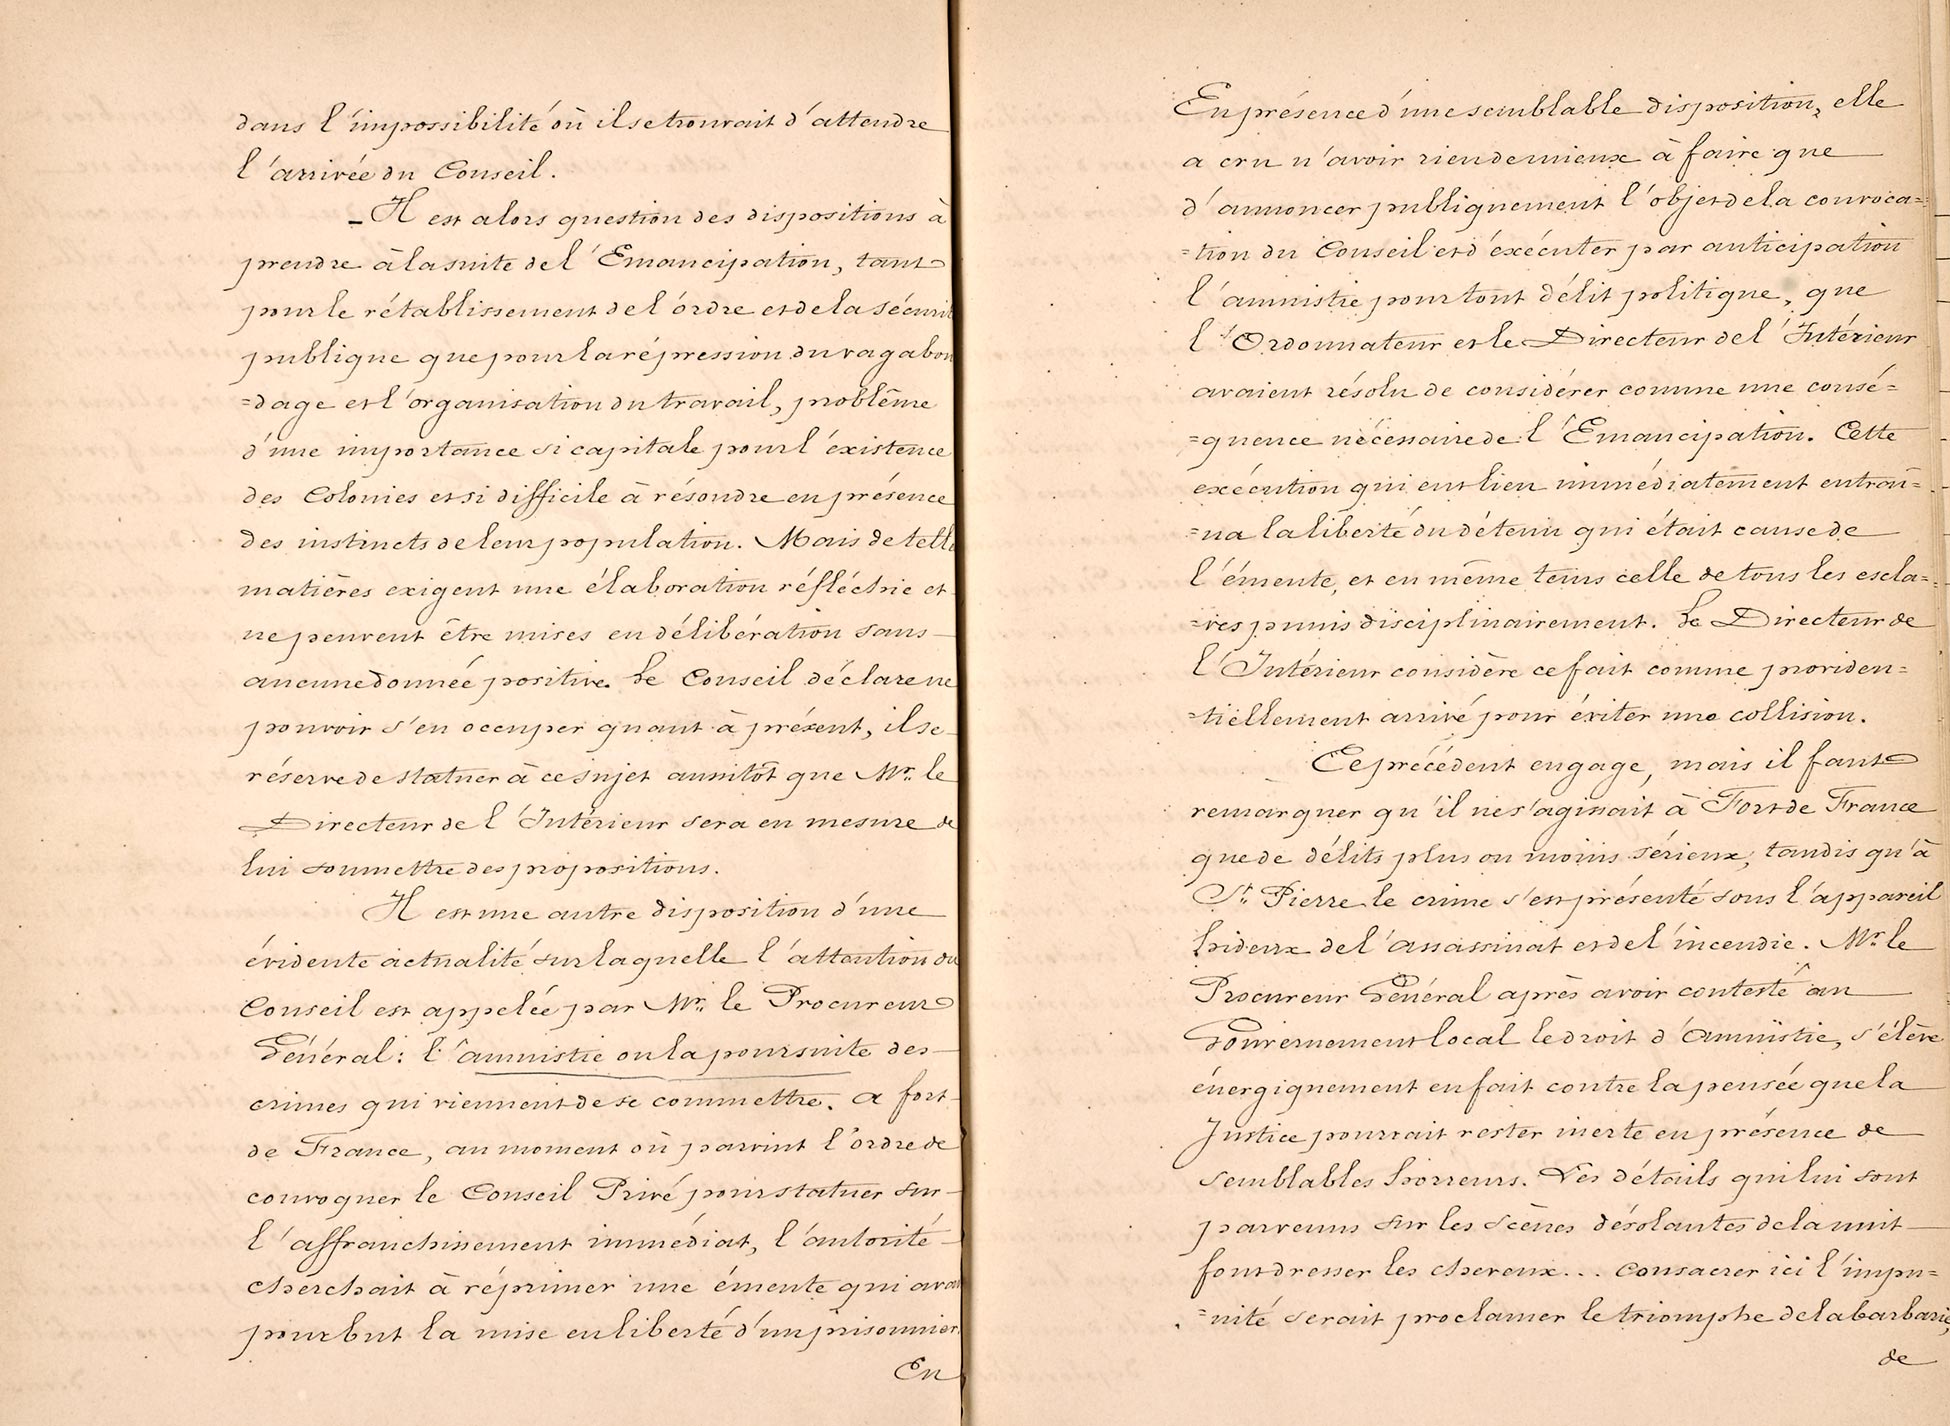 dans l'impossibilité où il se trouvait d'attendre
l'arrivée du Conseil.
_ Il est alors question des dispositions à
prendre à la suite de l'Emancipation, tant
pour le rétablissement de l'ordre et de la sécurit
publique que pour la répression du vagabon
=dage et l'organisation du travail, problême
d'une importance si capitale pour l'existence
des Colonies et si difficile à résoudre en présence
des instincts de leur population. Mais de telle
matières exigent une élaboration réfléchie et
ne peuvent être mises en délibération sans
aucune donnée positive. Le Conseil déclare ne
pouvoir s'en occuper quant à présent, il se
réserve de statuer à ce sujet aussitôt que Mr. le
Directeur de l'Intérieur sera en mesure de
lui soumettre des propositions.
Il est une autre disposition d'une
évidente actualité sur laquelle l'attention du
Conseil est appelée par Mr. le Procureur
Général: l'amnistie ou la poursuite des
crimes qui viennent de se commettre. A fort
de France, au moment où parvint l'ordre de
convoquer le Conseil Privé pour statuer sur
l'affranchissement immédiat, l'autorité
cherchait à réprimer une émeute qui avai
pour but la mise en liberté d'un prisonnier.
En
En présence d'une semblable disposition, elle
a cru n'avoir rien de mieux à faire que
d'annoncer publiquement l'objet de la convoca=
=tion du Conseil et d'exécuter par anticipation
l'amnistie pour tout délit politique, que
l'Ordonnateur et le Directeur de l'Intérieur
avaient résolu de considérer comme une consé=
=quence nécessaire de l'Emancipation. Cette
exécution qui eut lieu immédiatement entraî=
=na la liberté du détenu qui était cause de
l'émeute, et en même tems celle de tous les escla=
=ves punis disciplinairement. Le Directeur de
l'Intérieur considère ce fait comme providen=
=tiellement arrivé pour éviter une collision.
Ce précédent engage, mais il faut
remarquer qu'il ne s'agissait à Fort de France
que de délits plus ou moins sérieux, tandis qu'à
St. Pierre le crime s'est présenté sous l'appareil
hideux de l'assassinat et de l'incendie. Mr. le
Procureur Général après avoir contesté au
Gouvernement local le droit d'Amnistie, s'élève
énergiquement en fait contre la pensée que la
Justice pourrait rester inerte en présence de
semblables horreurs. Les détails qui lui sont
parvenus sur les scènes désolantes de la nuit
font dresser les cheveux... Consacrer ici l'impu=
=nité serait proclamer le triomphe de la barbarie,
de